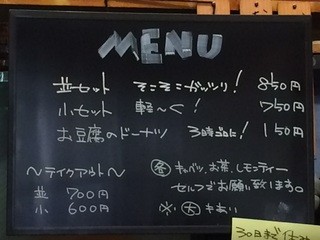 MENU
並セット そこそこガッツリ! 850円
小セット 軽〜く! 750円
お豆腐のドーナツ 3時ゴロに! 150円
〜テイクアウト〜
並 700円
小 600円
キャベツ、お茶、レモンティー
セルフでお願い致します。
※ 大 キあい
30日まで